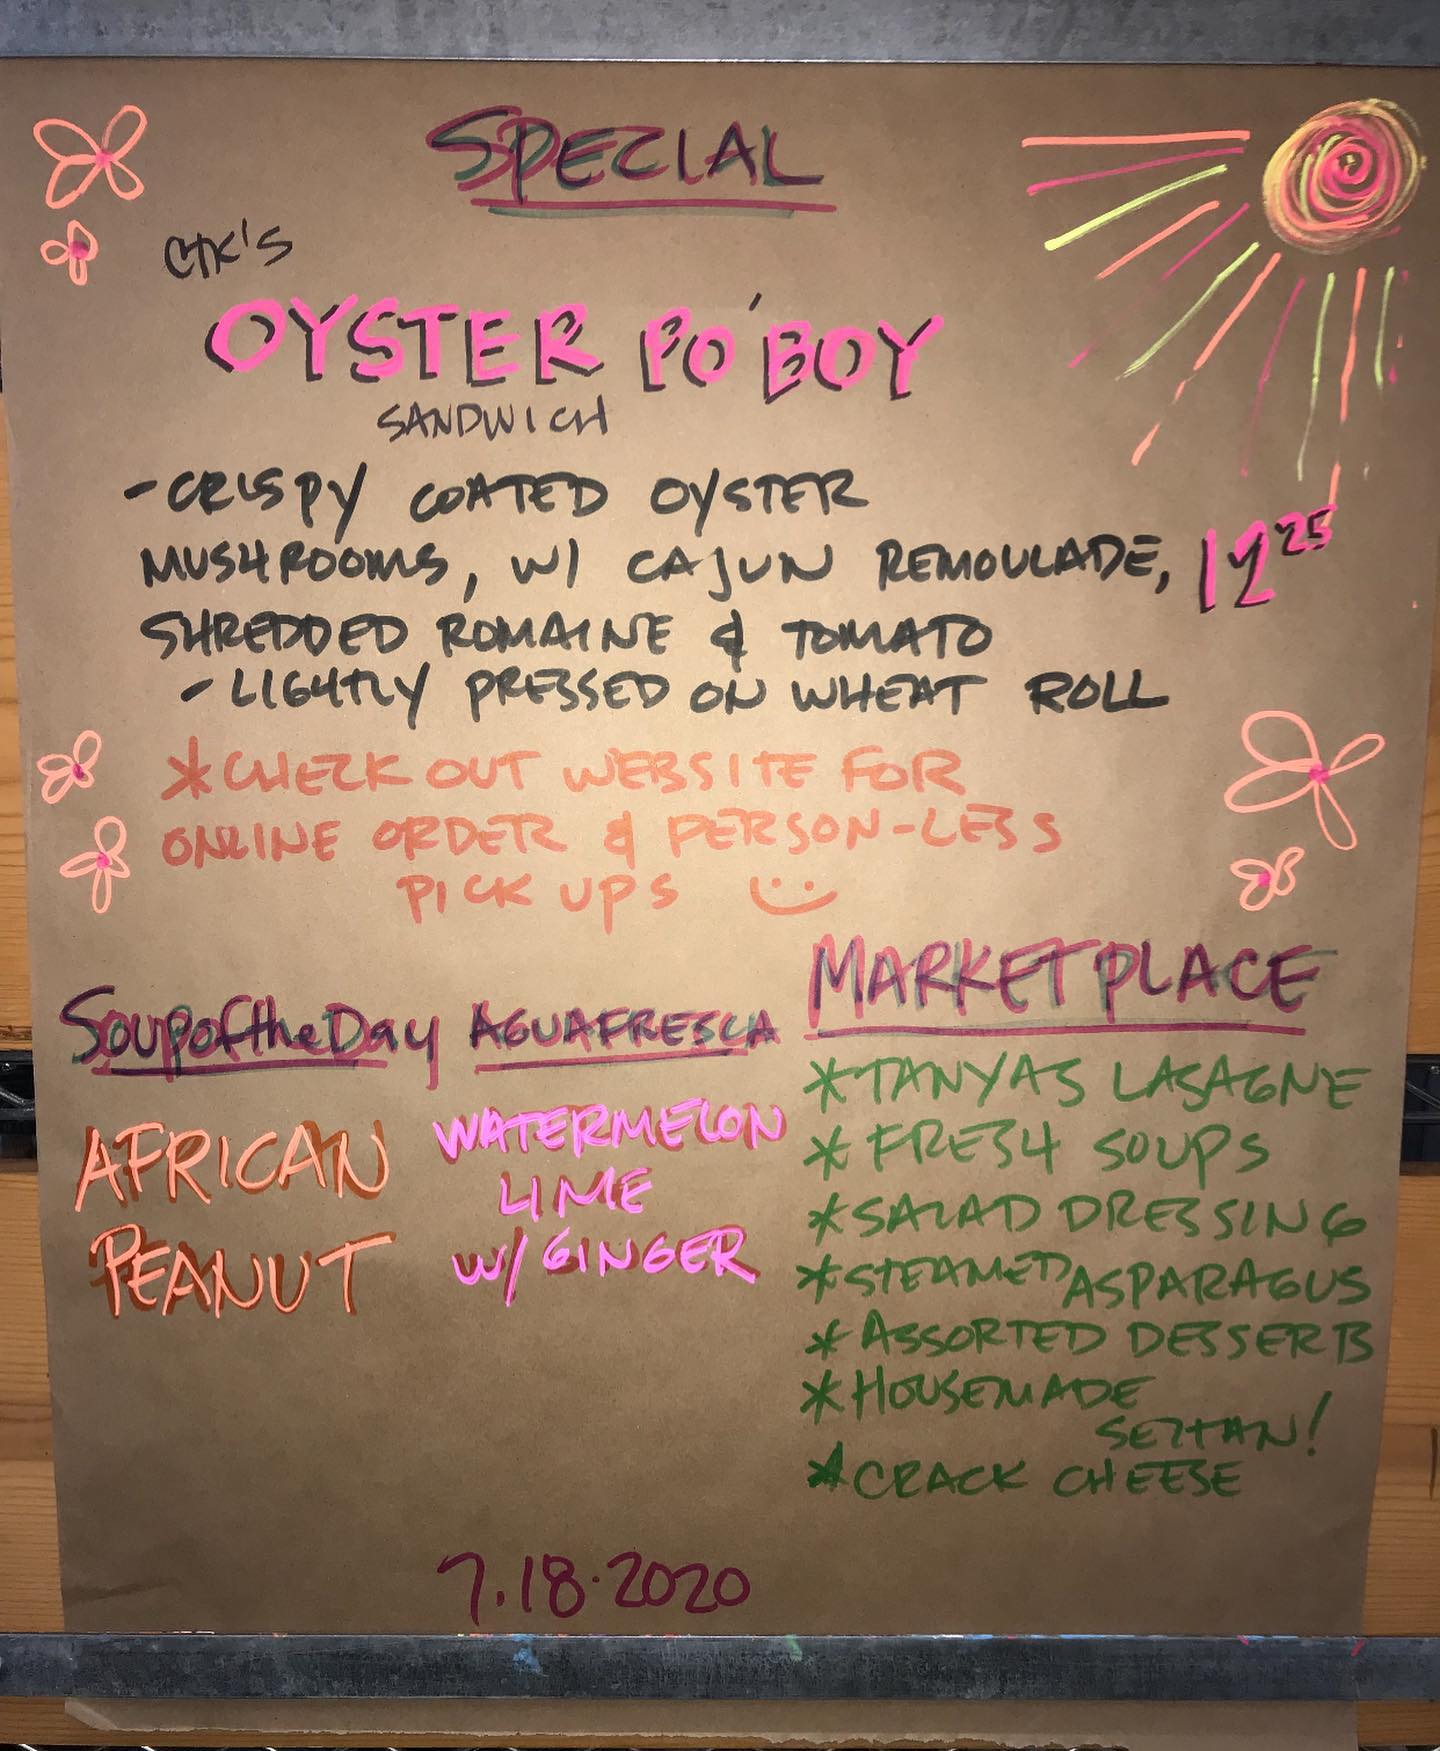 SPECIAL
CTK'S
OYSTER PO'BOY
SANDWICH
-CRISPY COATED OYSTER
MUSHROOMS, W/ CAJUN REMOULADE, 12 25
SHREDDED ROMAINE & TOMATO
-LIGHTLY PRESSED ON WHEAT ROLL
*CHECK OUT WEBSITE FOR
ONLINE ORDER & PERSON-LESS
PICK UPS :)
Soup of the Day
AFRICAN
PEANUT
AGUA FRESCA
WATERMELON
LIME
W/ GINGER
MARKETPLACE
*TANYAS LASAGNE
*FRESH SOUPS
*SALAD DRESSING
*STEAMED ASPARAGUS
*ASSORTED DESSERTS
*HOUSEMADE
SEITAN!
*CRACK CHEESE
7.18.2020